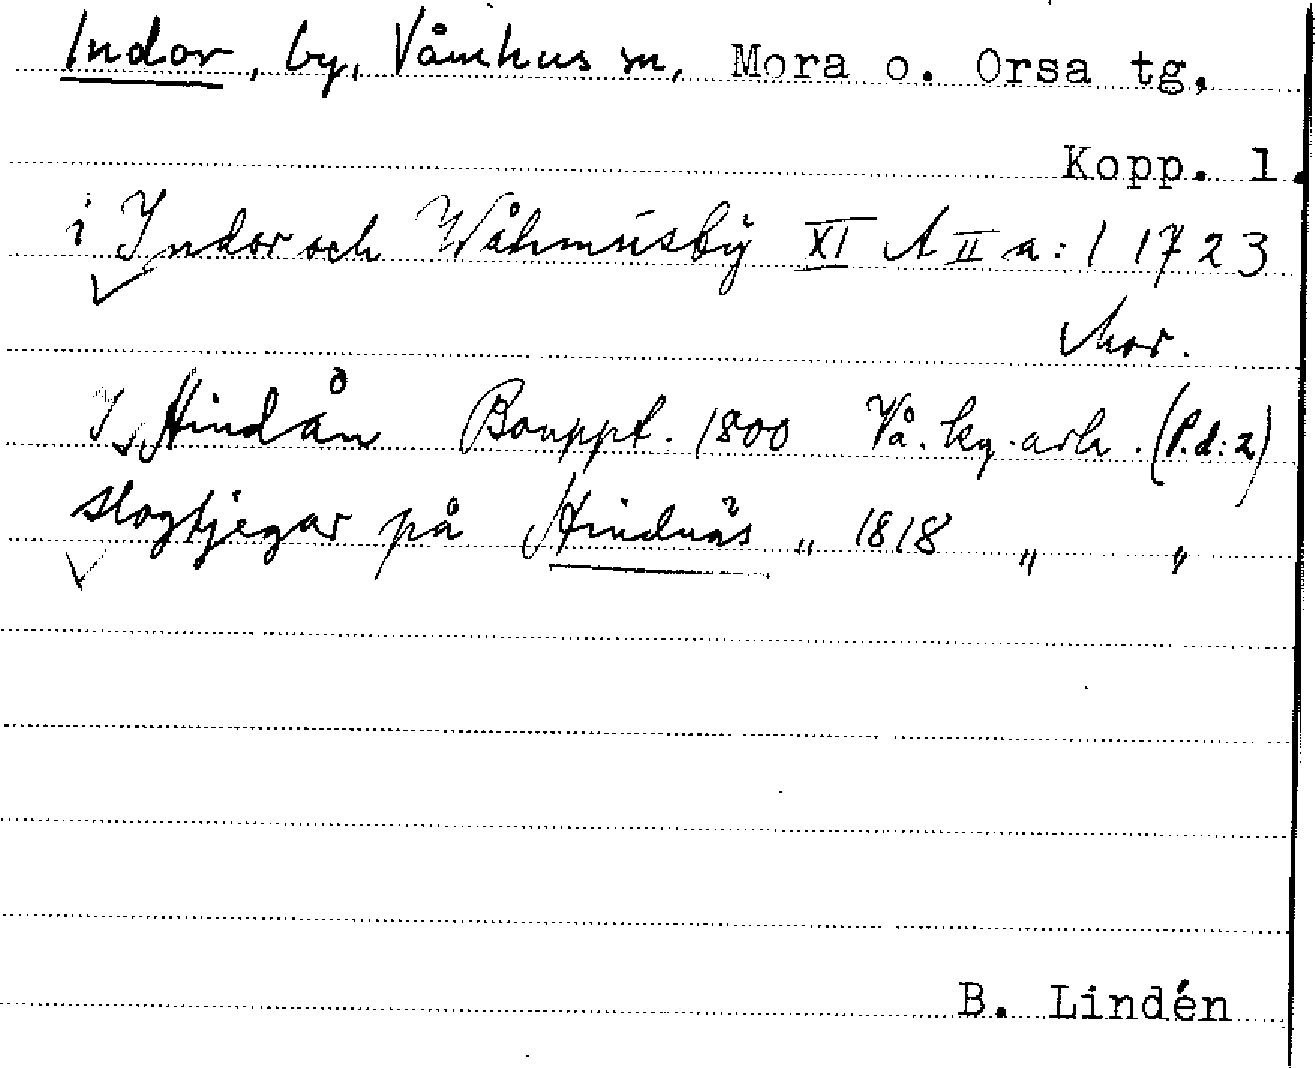 Indor, by, Våmhus sn, Mora o. Orsa tg,
Kopp. l.
i Indor och Wåhmusbÿ XI A II a:1 1723
Mor.
I Hindån Bouppt. 1800 Vå. ky. ark. (P.d:2)
slogtjegar på Hindnäs " 1818 " "
B. Lindén